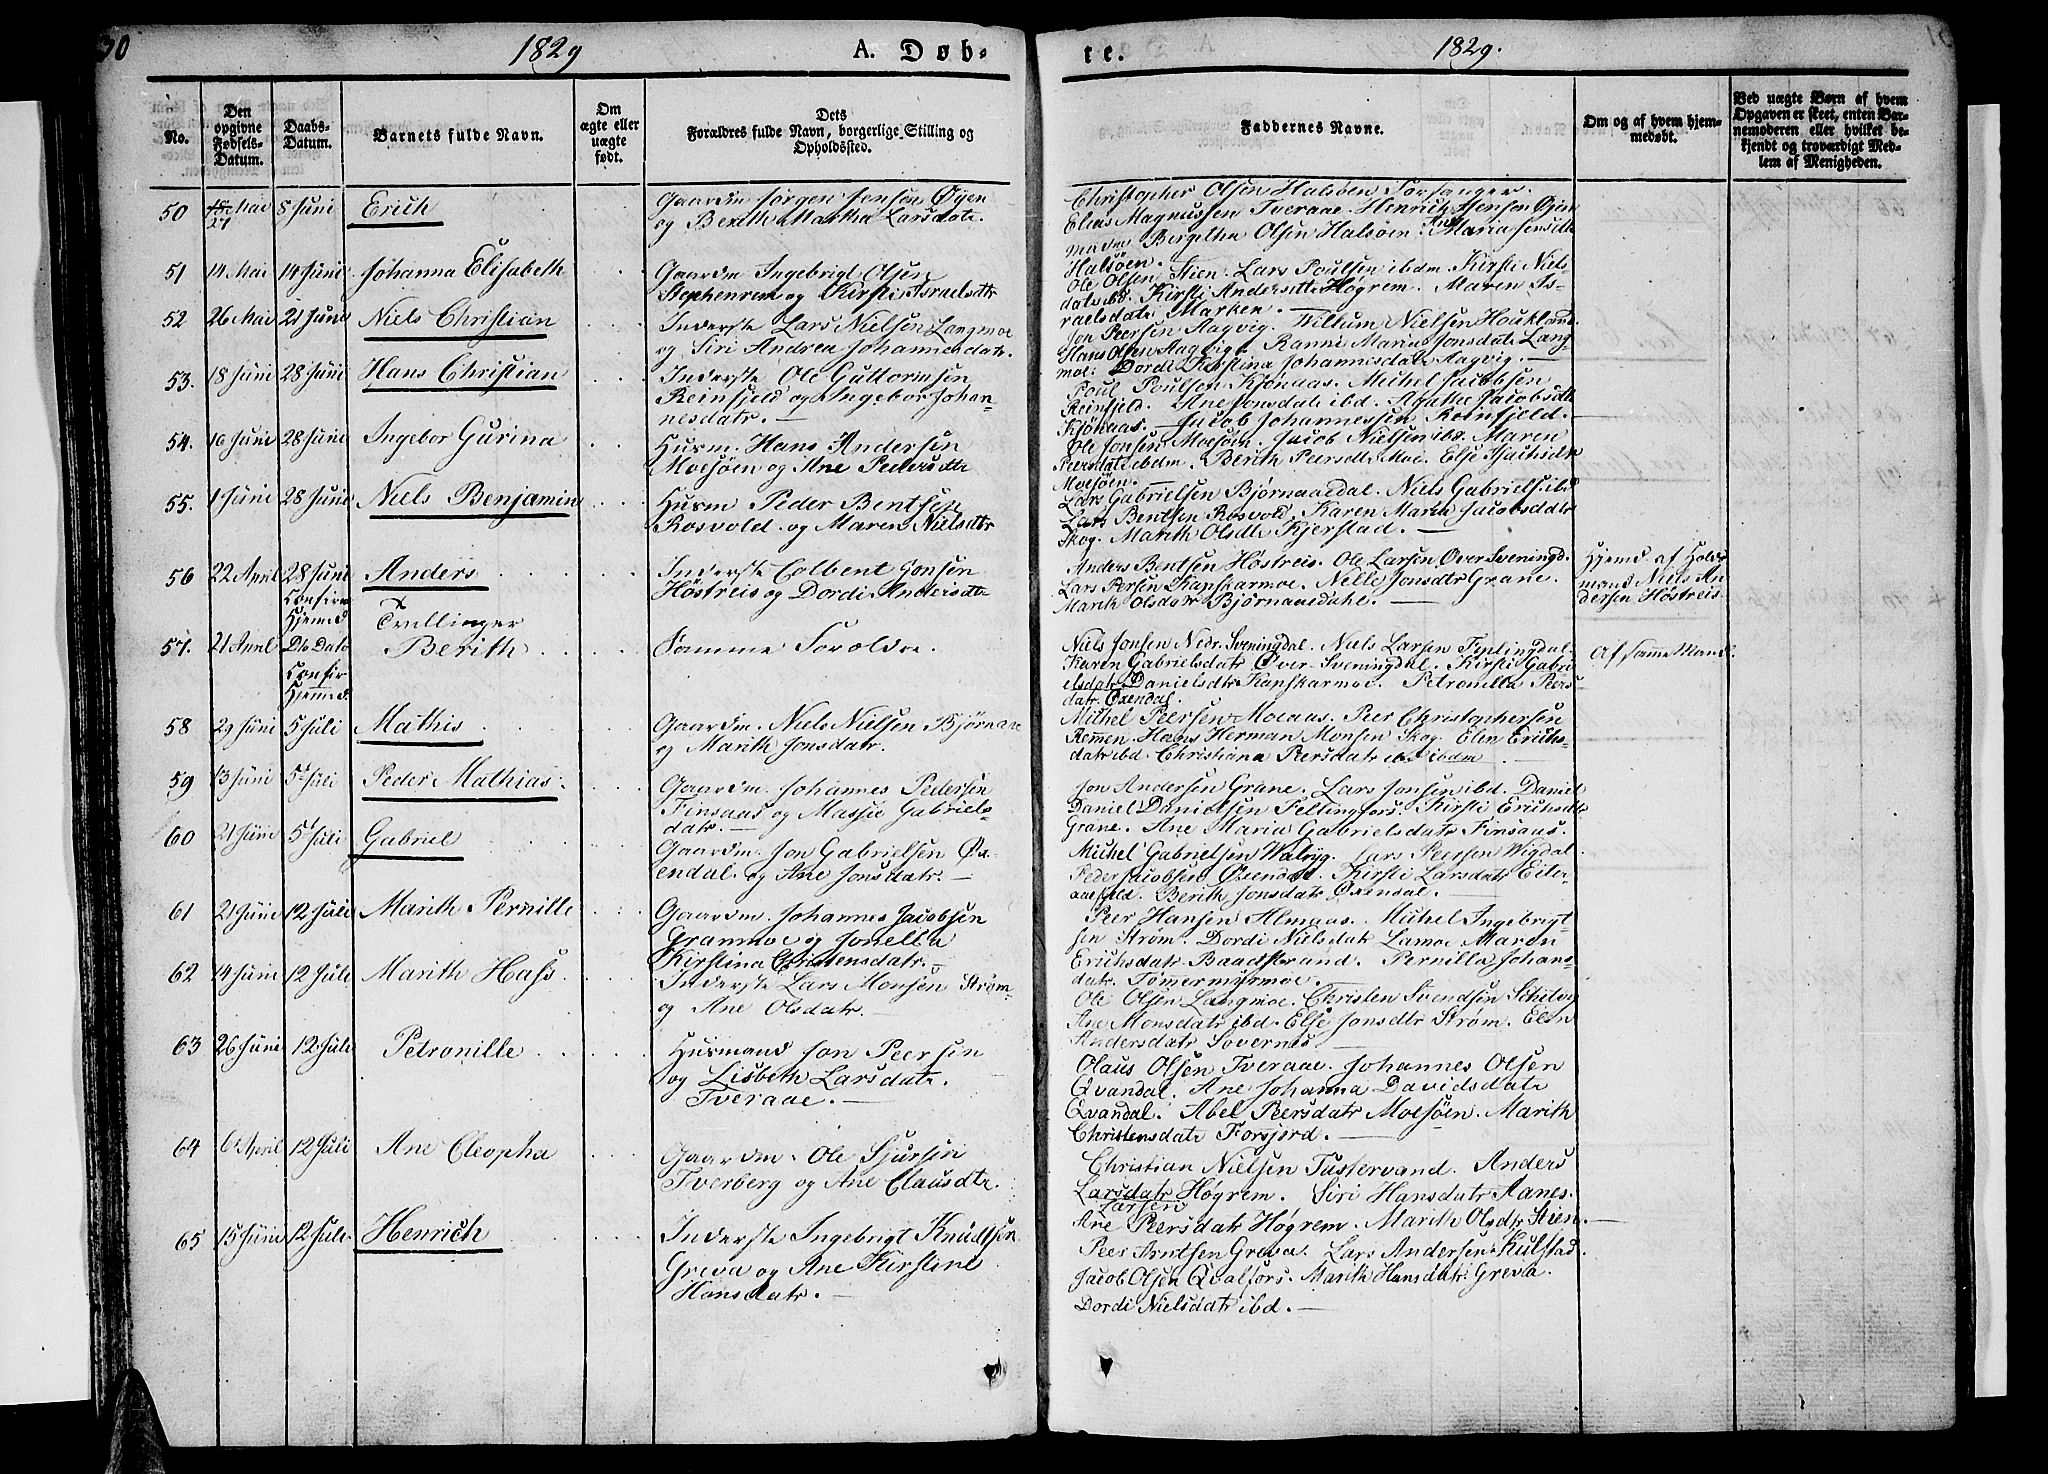 30 1829 A. Døb-
No.
Den opgivne Fødsels-Datum.
Daabs-Datum.
Barnets fulde Navn.
Om ægte eller uægte født.
Dets Forældres fulde Navn, borgerlige Stilling og Opholdssted.
50 27 Mai 8 Juni Erich Gaardm Jørgen Jensen Øyen
og Berith Martha Larsdatr.
51 14 Mai 14 Juni Johanna Elisabeth Gaardm Ingebrigt Olsen
Stephenrem og Kirsti Israelsdtr
52 26 Mai 21 Juni Niels Christian Inderste Lars Nielsen Langmoe
og Siri Andrea Johannesdatr.
53. 18 Juni 28 Juni Hans Christian Inderste Ole Guttormsen
Reinfjeld og Ingebor Johan-
nesdatr.
54. 16 Juni 28 Juni Ingebor Gurina Husm. Hans Andersen
Moesøen og Ane Pedersdtr
55. 1 Juni 28 Juni Niels Benjamin Husm Peder Bentsen
Rosvold og Maren Nielsdtr
56 22 April 28 Juni Anders Inderste Colbent Jonsen
Confirm Hjemmed Høstreis og Dordi Andersdtr
Tvillinger
57. 21 April Dto Dato Berith Samme Forældre.
Confir
Hjemmed.
58 29 Juni 5 Juli Mathis Gaardm. Niels Nielsen Bjørnaae
og Marith Jonsdatr.
59 13 Juni 5 Juli Peder Mathias Gaardm. Johannes Pedersen
Finsaas og Massie Gabriels-
datr.
60 21 Juni 5 Juli Gabriel Gaardm. Jon Gabrielsen Øx-
endal og Ane Jonsdatr.
61 21 Juni 12 Juli Marith Pernille Gaardm. Johannes Jacobsen
Granmoe og Jonella
Kirstina Christensdatr.
62 14 Juni 12 Juli Marith Hass Inderste Lars Monsen Strøm
og Ane Olsdatr.
63 26 Juni 12 Juli Petronille Husmand Jon Peersen
og Lisbeth Larsdatr.
Tveraae.
64 6 April 12 Juli Ane Cleopha Gaardm. Ole Sjursen
Tverberg og Ane Clausdtr.
65 15 Juni 12 Juli Henrich Inderste Ingebrigt Knudtsen
Greva og Ane Kirstine
Hansdatr.
te. 1829.
Faddernes Navne.
Om og af hvem hjem-medøbt.
Ved uægte Børn af hvem Opgaven er skeet, enten Bar-nemoderen eller hvilket be-kjendt og troværdigt Med-lem af Menigheden.
Christopher Olsen Halsøen
Elias Magnussen Tveraae. Henrich Jensen Øyen
Madm Bergitha Olsen Halsøen. Maria Jensdtr
Halsøen.
Ole Olsen Stien. Lars Poulsen ibdm. Kirsti Niels
datr ibd. Kirsti Andersdtr Høgrem. Maren Is-
raelsdatr Marken.
Jon Peersen Aagvig. Willum Nielsen
Hans Olsen Aagvig. Maria Jonsdatr Lang-
moe. Dordi Kirstina Johannesdatr Aagvig.
Poul Poulsen Kjønaas. Michel Jacobsen
Reinfjeld. Ane Jonsdatr ibd. Agathe Jacobsdtr
Kjønaas. Jacob Johannessen Reinfjeld.
Ole Jonsen Moesøen. Jacob Nielsen ibd. Maren
Peersdatr ibdm. Berith Peersdtr Moe. Else
Moesøen.
Lars Gabrielsen Bjørnaaedal. Niels Gabriels. ibd
Lars Bentsen Rosvold. Karen Maria Jacobsdatr
Skog. Marith Olsdtr Kjerstad.
Anders Bentsen Høstreis. Ole Larsen Over Sveningd. Hjemd. af
Lars Persen Kanskarmoe. Nille Jonsdtr Grane. mand Niels An-
Marith Olsdatr Bjørnaaedahl. dersen Høstreis
Niels Jonsen Nedr. Sveningdal. Niels Larsen
Karen Gabrielsdatr Over Sveningdal. Kirsti Gabri Af samme Mand.
elsdatr. Danielsdtr Kanskarmoe. Petronilla Peers
datr. Øxendal.
Michel Peersen Moeaas. Peer Christophersen
Remen Hans Herman Monsen Skog. Elen Erichs-
datr ibd. Christiana Peersdatr ibdm
Jon Andersen Grane. Lars Jonsen ibd. Daniel
Daniel Danielsen Fellingfors. Kirsti Erichsdtr
Grane. Ane Maria Gabrielsdatr Finsaas.
Michel Gabrielsen Walryg. Lars Peersen Wigdal
Peder Jacobsen Øxendal. Kirsti Larsdatr Eiter-
aaefjeld. Berith Jonsdatr Øxendal.
Peer Hansen Almaas. Michel Ingebrigt-
sen Strøm. Dordi Nielsdatr Lamoe Maren
Erichsdatr Baadstrand. Pernilla Johans-
datr. Tømermyrmoe.
Ole Olsen Langmoe. Christen Svendsen
Ane Monsdatr ibd. Else Jonsdtr Strøm. Elen
Andersdatr Sovernes.
Olaus Olsen Tveraae. Johannes Olsen
Qvandal. Ane Johanna Davidsdatr
Qvandal. Abel Peersdatr Moesøen. Marith
Christensdatr Forsjord.
Christian Nielsen Tustervand. Anders
Larsdatr Høgrem. Siri Hansdatr Aanes.
Larsen
Ane Peersdatr Høgrem. Marith Olsdtr Stien.
Peer Arntsen Greva. Lars Andersen Kulstad
Jacob Olsen Qvalfors. Marith Hansdatr Greva.
Dordi Nielsdatr ibd.